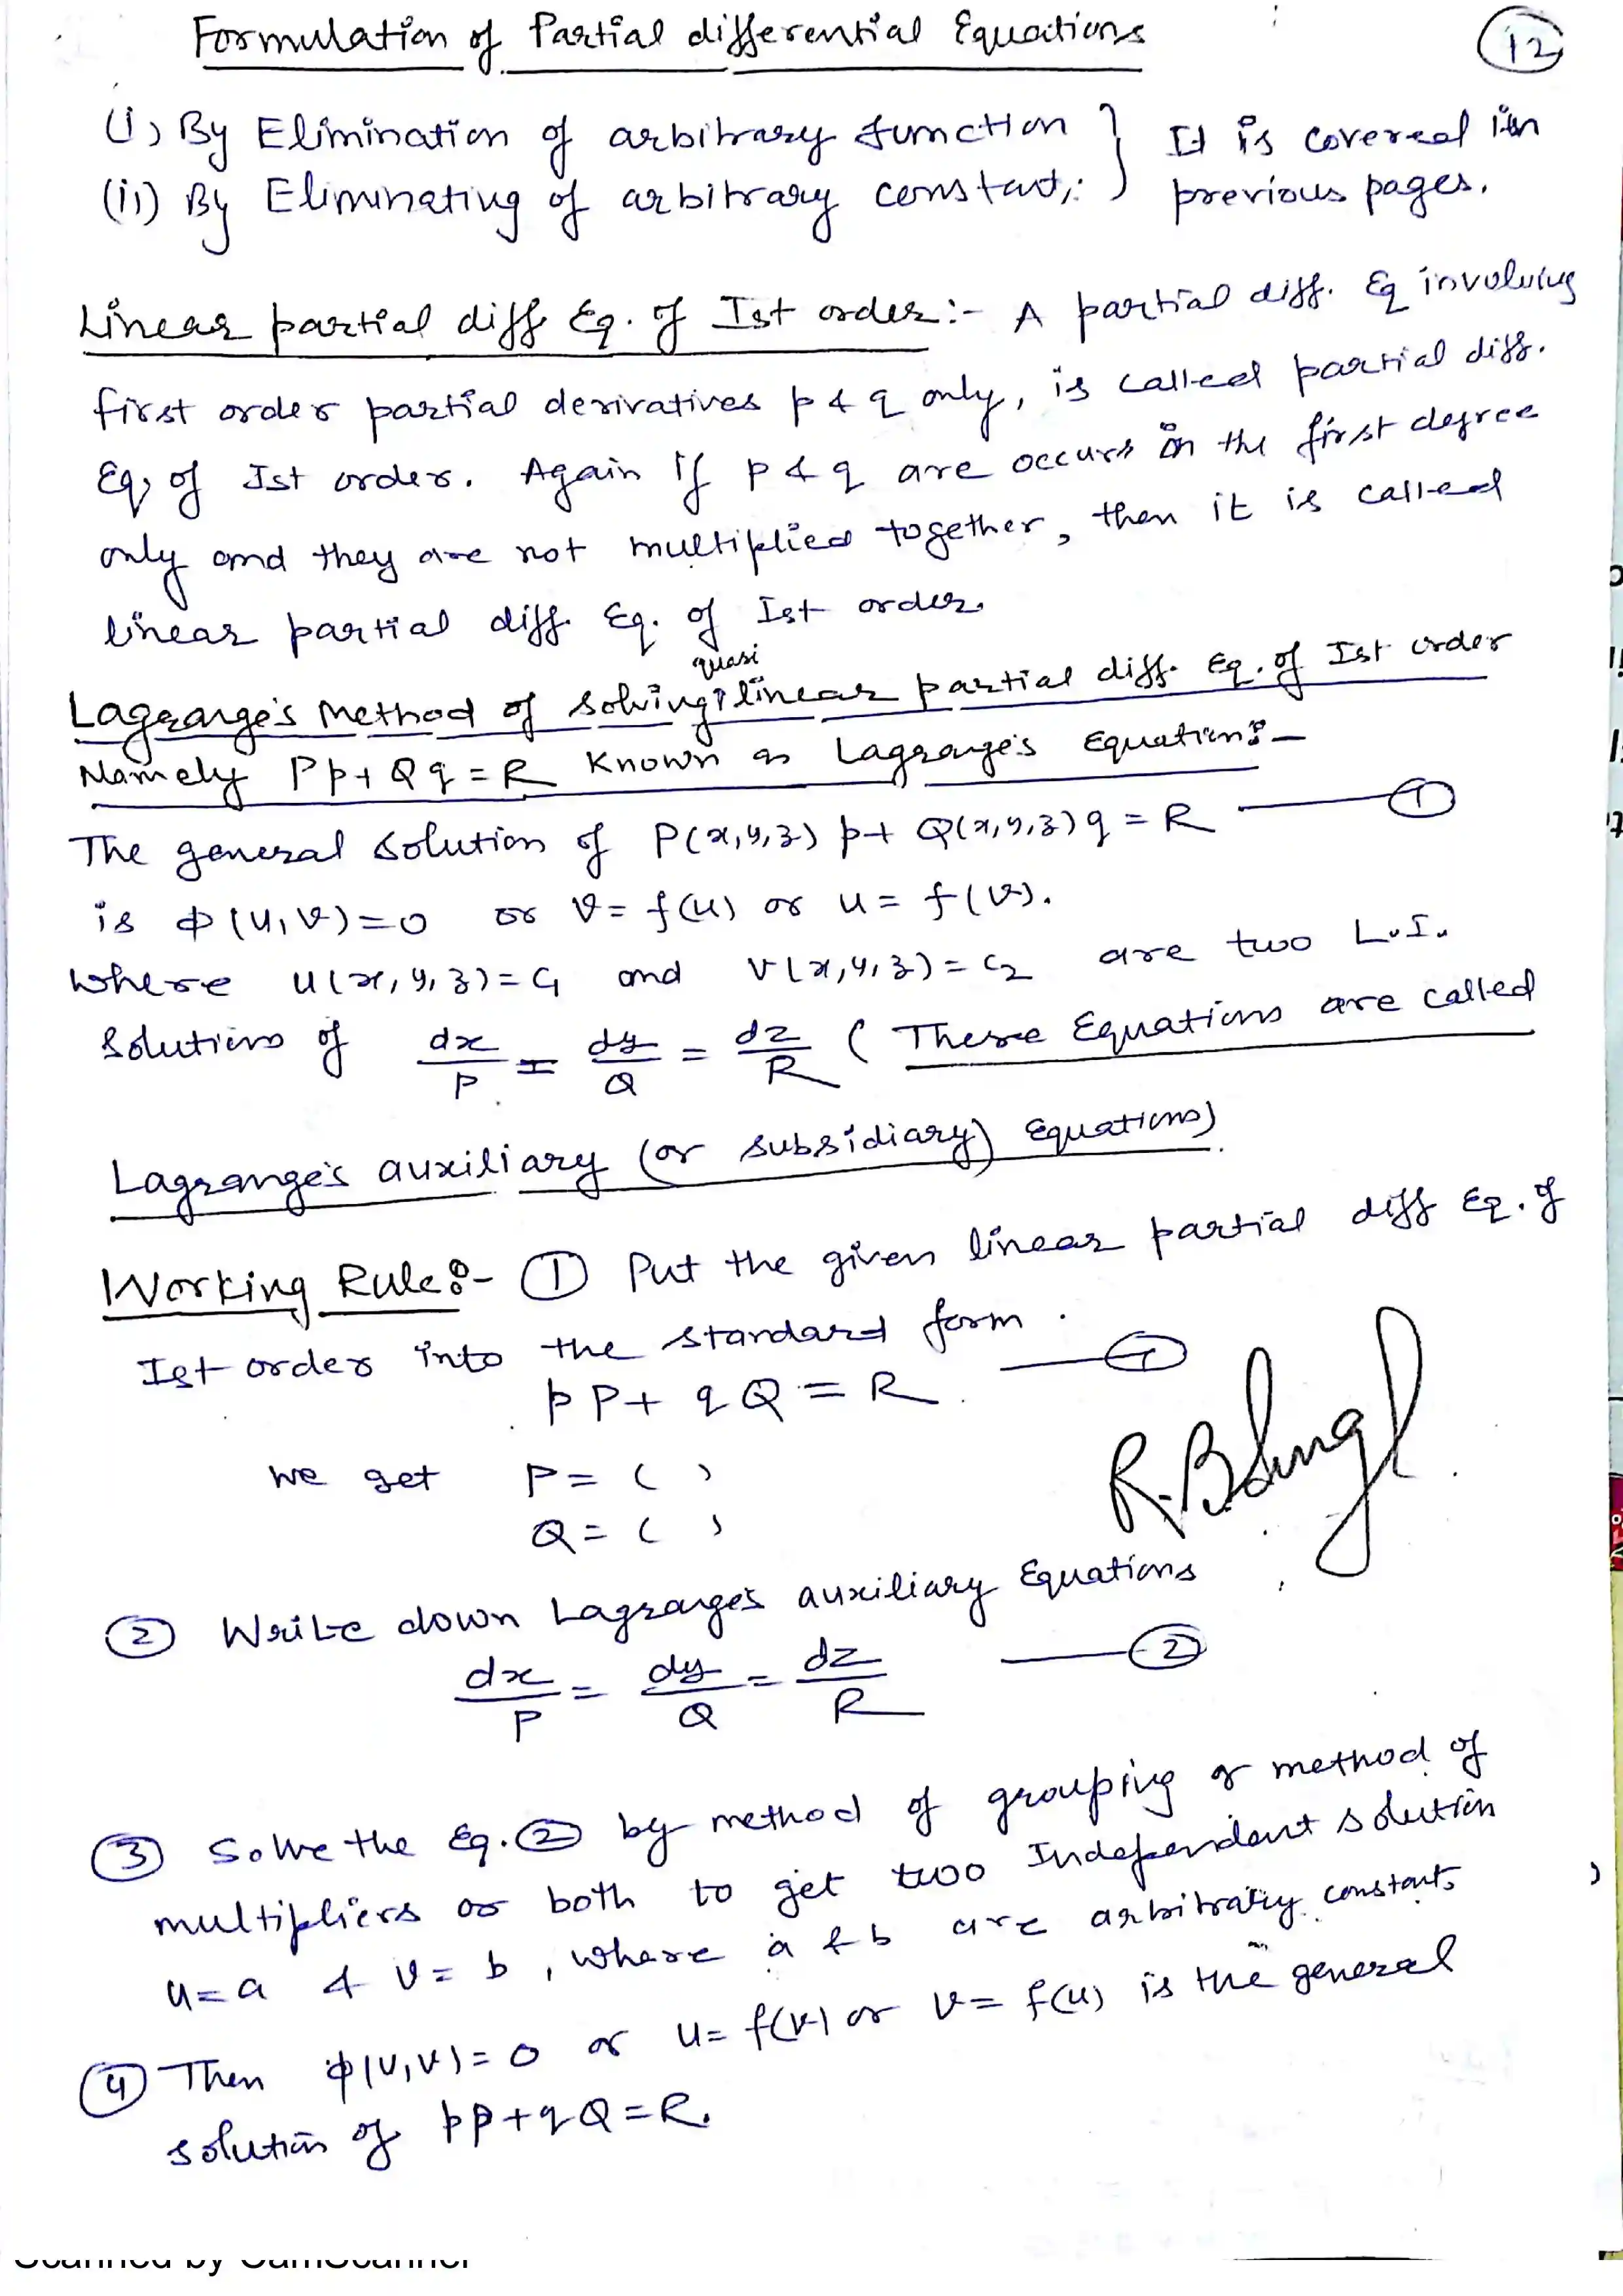 Formulation of Partial differential Equations
12
(i) By Elimination of arbitrary function } It is covered in
(ii) By Eliminating of arbitrary constant; } previous pages.
Linear partial diff Eq. of Ist order:- A partial diff. Eq involving
first order partial derivatives p & q only, is called partial diff.
Eq, of Ist order. Again if p & q are occurs in the first degree
only and they are not multiplied together, then it is called
linear partial diff. Eq. of Ist order.
quasi
Lagrange's Method of solving linear partial diff. Eq. of Ist order
Namely Pp + Qq = R Known as Lagrange's Equation:-
The general solution of P(x,y,z) p + Q(x,y,z) q = R — ①
is ϕ(u,v)=0 or v = f(u) or u = f(v).
where u(x,y,z)=c₁ and v(x,y,z)=c₂ are two L.I.
solutions of dx/P = dy/Q = dz/R ( These Equations are called
Lagrange's auxiliary (or subsidiary) Equations)
Working Rule:- ① Put the given linear partial diff Eq. of
Ist order into the standard form.
pP + qQ = R — ①
we get P = ( )
Q = ( )
R.Bhingl
② Write down Lagrange's auxiliary Equations
dx/P = dy/Q = dz/R — ②
③ Solve the Eq. ② by method of grouping or method of
multipliers or both to get two Independent solution
u=a & v=b, where a & b are arbitrary constants
④ Then ϕ(u,v)=0 or u=f(v) or v=f(u) is the general
solution of pp+qQ=R.
Scanned by CamScanner